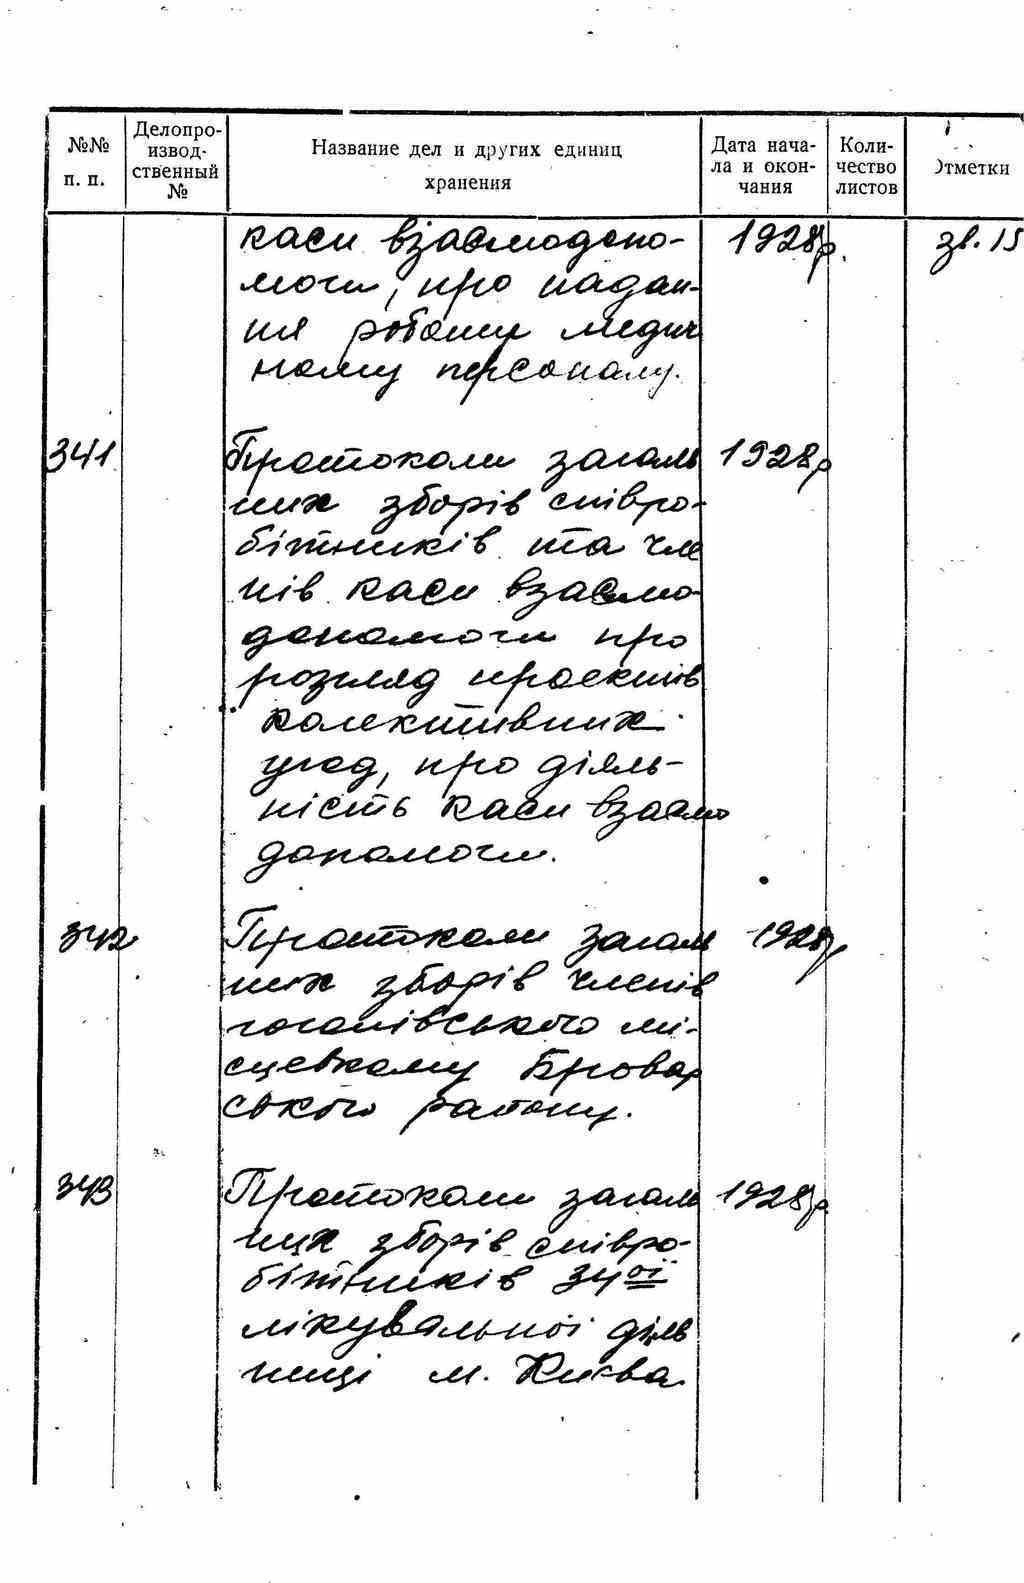 №№ п. п.
Делопроизводственный №
Название дел и других единиц хранения
Дата начала и окончания
Количество листов
Отметки
каси взаємодопо- 1928р. зв. 15
моги, про надан-
ня роботи медич
ному персоналу.
341 Протоколи загаль 1928р
них зборів співро-
бітників та чле
нів каси взаємо-
допомоги про
розгляд проектів
колективних
угод, про діяль-
ність каси взаємо
допомоги.
342 Протоколи загаль 1928р
них зборів членів
гоголівського мі-
сцевкому Бровар
ського району.
343 Протоколи загаль 1928р.
них зборів співро-
бітників 34ої
лікувальної діль
ниці м. Києва